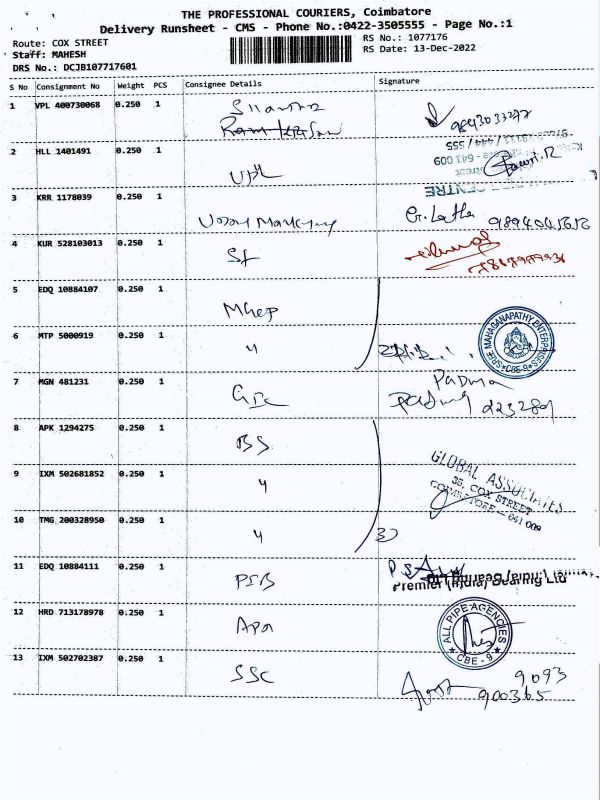 THE PROFESSIONAL COURIERS, Coimbatore
Delivery Runsheet - CMS - Phone No.:0422-3505555 - Page No.:1
Route: COX STREET
RS No.: 1077176
Staff: MAHESH
RS Date: 13-Dec-2022
DRS No.: DCJB107717601
S No Consignment No Weight PCS Consignee Details Signature
1 VPL 400730068 0.250 1
2 HLL 1401491 0.250 1 UPL
3 KRR 1178039 0.250 1 G. Latha 9894041612
CENTRE
4 KUR 528103013 0.250 1 SF
5 EDQ 10884107 0.250 1
6 MTP 5000919 0.250 1 "
SREE MAHAGANAPATHY ENTERPRISES CBE-9
7 MGN 481231 0.250 1 Padma
8 APK 1294275 0.250 1 BS
9 IXM 502681852 0.250 1 "
GLOBAL ASSOCIATES
35, COX STREET
COIMBATORE - 641 009
10 TMG 200328950 0.250 1 "
11 EDQ 10884111 0.250 1 PIB
Premier (India) Bearing Ltd
12 HRD 713178978 0.250 1 Apa
ALL PIPE AGENCIES CBE - 9
13 IXM 502702387 0.250 1 SSC 9093
900365